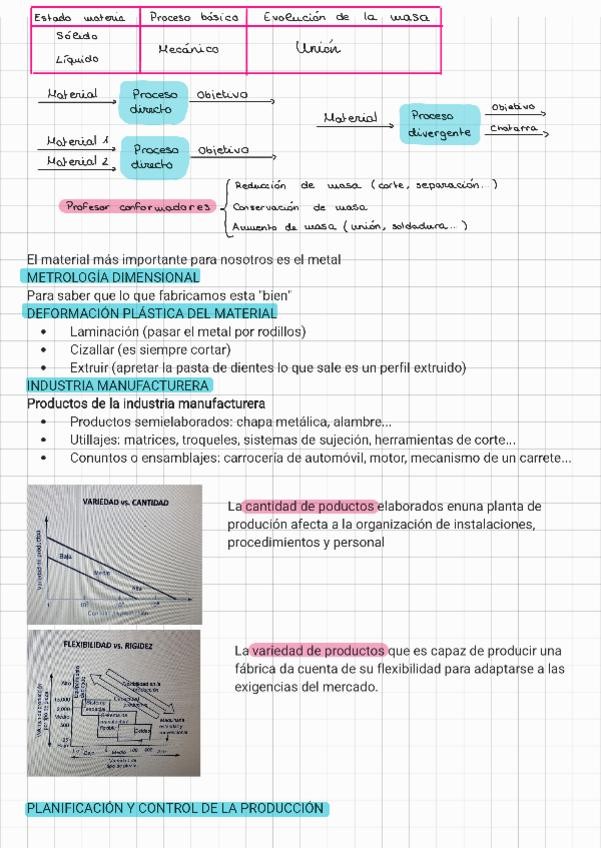 Estado materia Proceso básico Evolución de la masa
Sólido
Líquido
Mecánico
Unión
Material Proceso directo Objetivo
Material Proceso divergente Objetivo Chatarra
Material 1 Material 2 Proceso directo Objetivo
Reducción de masa (corte, separación...)
Profesor conformadores Conservación de masa
Aumento de masa (unión, soldadura...)
El material más importante para nosotros es el metal
METROLOGÍA DIMENSIONAL
Para saber que lo que fabricamos esta "bien"
DEFORMACIÓN PLÁSTICA DEL MATERIAL
• Laminación (pasar el metal por rodillos)
• Cizallar (es siempre cortar)
• Extruir (apretar la pasta de dientes lo que sale es un perfil extruido)
INDUSTRIA MANUFACTURERA
Productos de la industria manufacturera
• Productos semielaborados: chapa metálica, alambre...
• Utillajes: matrices, troqueles, sistemas de sujeción, herramientas de corte...
• Conuntos o ensamblajes: carrocería de automóvil, motor, mecanismo de un carrete...
VARIEDAD vs. CANTIDAD
Variedad de productos
Baja
Media
Alta
La cantidad de poductos elaborados enuna planta de
produción afecta a la organización de instalaciones,
procedimientos y personal
FLEXIBILIDAD vs. RIGIDEZ
Alto
15,000
Medio
500
Bajo
Medio
La variedad de productos que es capaz de producir una
fábrica da cuenta de su flexibilidad para adaptarse a las
exigencias del mercado.
PLANIFICACIÓN Y CONTROL DE LA PRODUCCIÓN